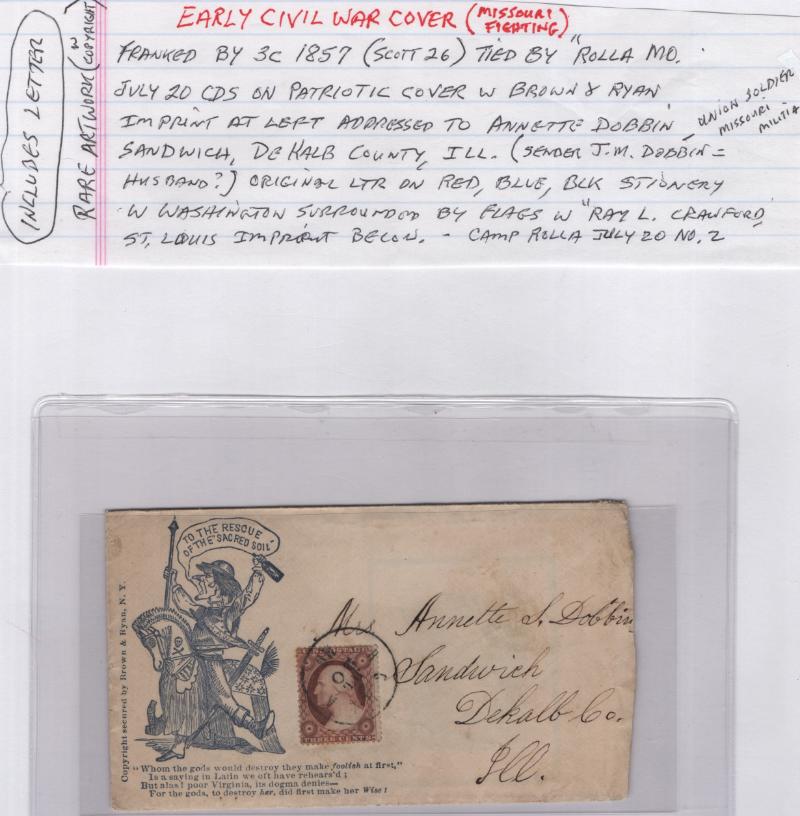 EARLY CIVIL WAR COVER (MISSOURI FIGHTING)
FRANKED BY 3C 1857 (SCOTT 26) TIED BY "ROLLA MO.
JULY 20 CDS ON PATRIOTIC COVER W BROWN & RYAN
IMPRINT AT LEFT ADDRESSED TO ANNETTE DOBBIN
SANDWICH, DE KALB COUNTY, ILL. (SENDER J.M. DOBBIN =
HUSBAND?) ORIGINAL LTR ON RED, BLUE, BLK STIONERY
W WASHINGTON SURROUNDED BY FLAGS W "RAY L. CRAWFORD,
ST, LOUIS IMPRINT BELOW. - CAMP ROLLA JULY 20 NO. 2
UNION SOLDIER
MISSOURI
MILITIA
INCLUDES LETTER
RARE ARTWORK (W COPYRIGHT)
TO THE RESCUE
OF THE "SACRED SOIL"
Copyright secured by Brown & Ryan, N. Y.
Mrs Annette S. Dobbin
Sandwich
Dekalb Co.
Ill.
POSTAGE
THREE CENTS
"Whom the gods would destroy they make foolish at first,"
Is a saying in Latin we oft have rehears'd;
But alas! poor Virginia, its dogma denies—
For the gods, to destroy her, did first make her Wise!